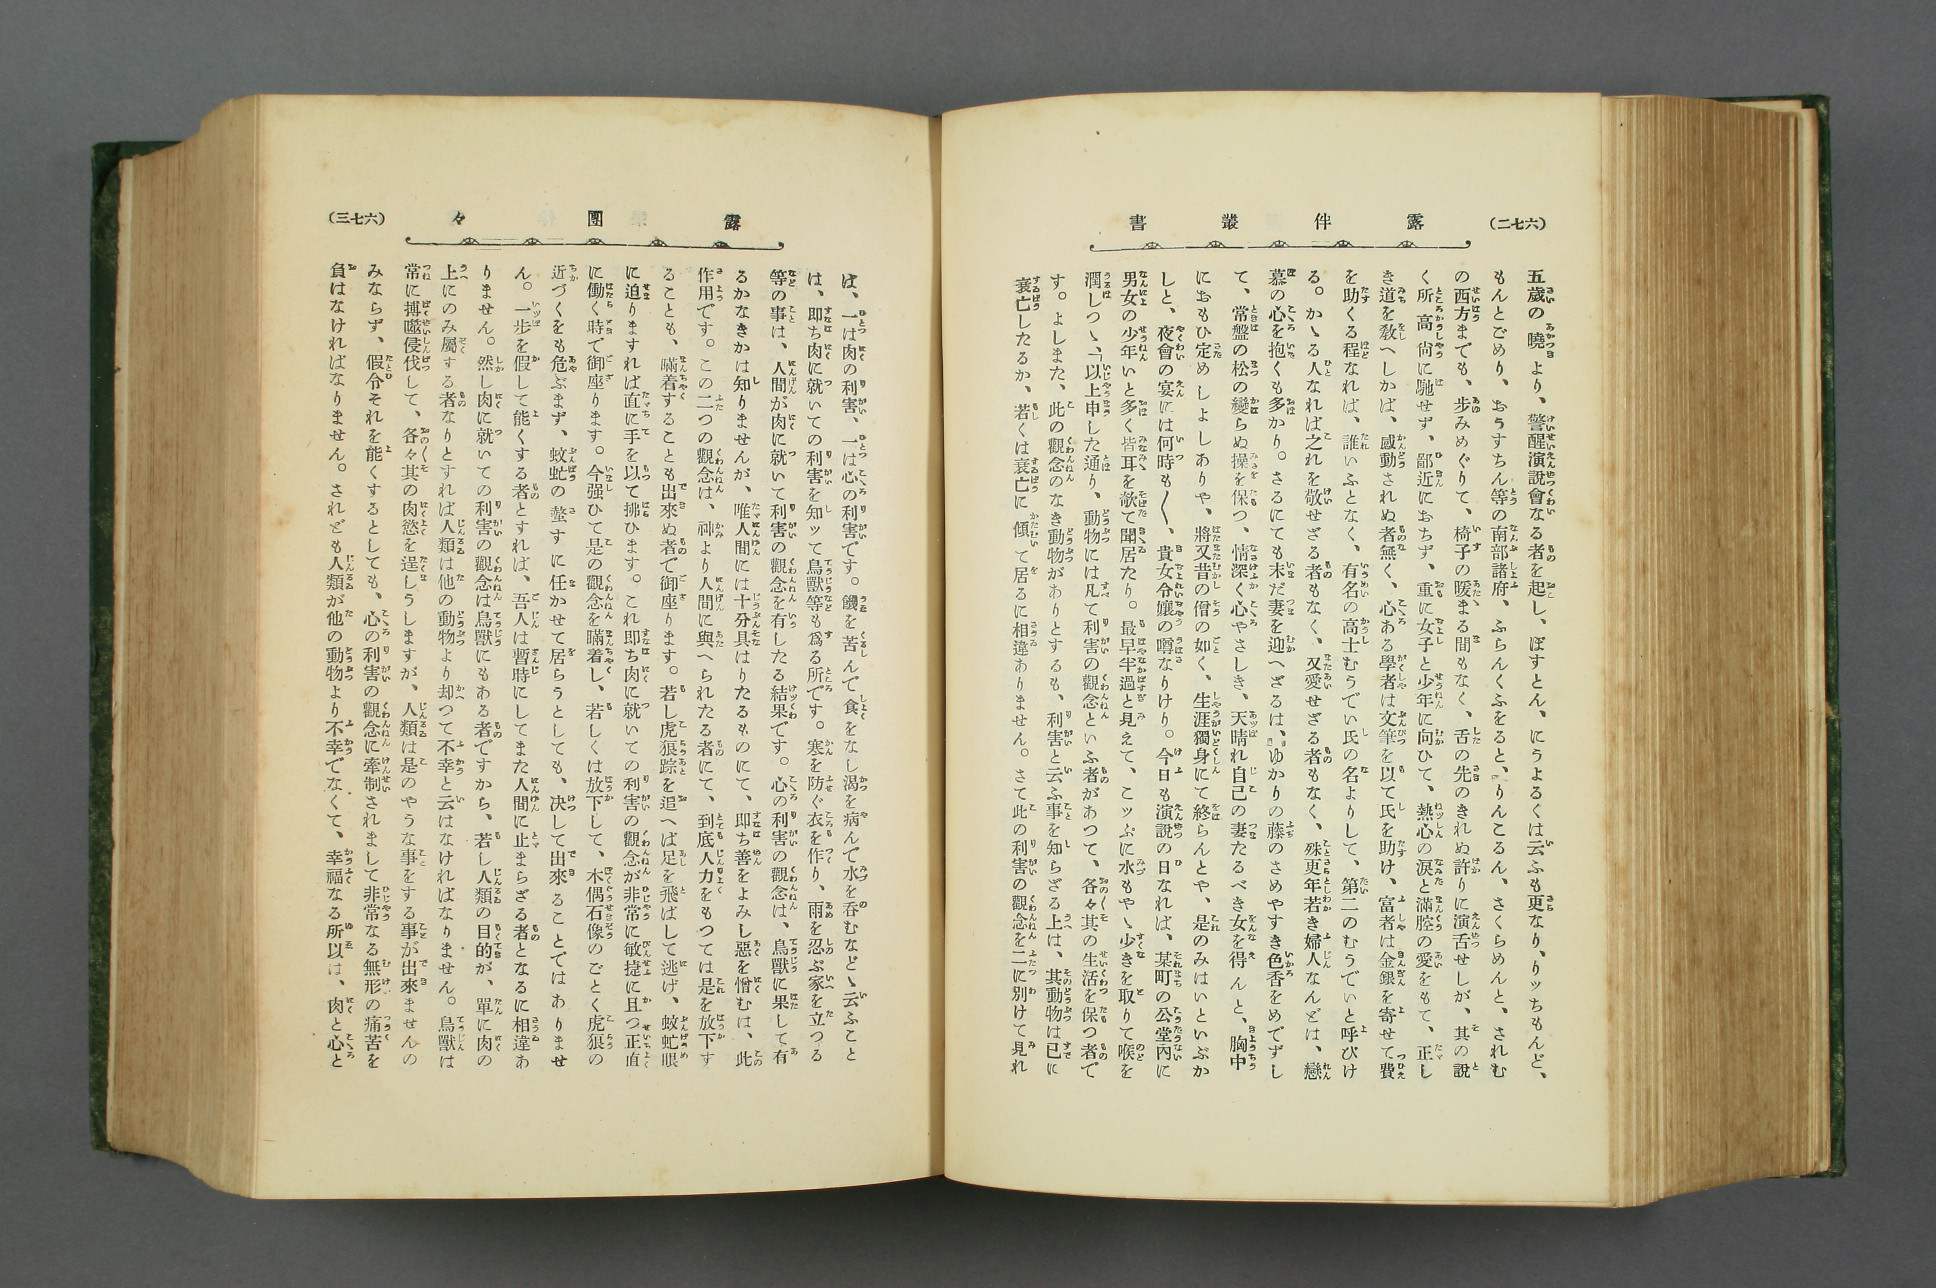 (二七六)
露伴叢書
五歳の曉より、警醒演説會なる者を起し、ぼすとん、にうよるくは云ふも更なり、りッちもんど、
もんとごめり、おうすちん等の南部諸府、ふらんくふをると、りんこるん、さくらめんと、されむ
の西方までも、歩みめぐりて、椅子の暖まる間もなく、舌の先のきれぬ許りに演舌せしが、其の説
く所高尚に馳せず、鄙近におちず、重に女子と少年に向ひて、熱心の涙と滿腔の愛をもて、正し
き道を敎へしかば、感動されぬ者無く、心ある學者は文筆を以て氏を助け、富者は金銀を寄せて費
を助くる程なれば、誰いふとなく、有名の高士むうでい氏の名よりして、第二のむうでいと呼びけ
る。かゝる人なれば之れを敬せざる者もなく、又愛せざる者もなく、殊更年若き婦人なんどは、戀
慕の心を抱くも多かり。さるにても未だ妻を迎へざるは、ゆかりの藤のさめやすき色香をめでずし
て、常盤の松の變らぬ操を保つ、情深く心やさしき、天晴れ自己の妻たるべき女を得んと、胸中
におもひ定めしよしありや、將又昔の僧の如く、生涯獨身にて終らんとや、是のみはいといぶか
しと、夜會の宴には何時も〱、貴女令孃の噂なりけり。今日も演説の日なれば、某町の公堂內に
男女の少年いと多く皆耳を欹て聞居たり。最早半過と見えて、こッぷに水もやゝ少きを取りて喉を
潤しつゝ、「以上申した通り、動物には凡て利害の觀念といふ者があつて、各々其の生活を保つ者で
す。よしまた、此の觀念のなき動物がありとするも、利害と云ふ事を知らざる上は、其動物は已に
衰亡したるか、若くは衰亡に傾いて居るに相違ありません。さて此の利害の觀念を二に別けて見れ
露團々
(三七六)
ば、一は肉の利害、一は心の利害です。饑を苦んで食をなし渴を病んで水を呑むなどゝ云ふこと
は、即ち肉に就いての利害を知ッて鳥獸等も爲る所です。寒を防ぐ衣を作り、雨を忍ぶ家を立つる
等の事は、人間が肉に就いて利害の觀念を有したる結果です。心の利害の觀念は、鳥獸に果して有
るかなきかは知りませんが、唯人間には十分具はりたるものにて、即ち善をよみし惡を憎むは、此
作用です。この二つの觀念は、神より人間に與へられたる者にて、到底人力をもつては是を放下す
ることも、瞞着することも出來ぬ者で御座ります。若し虎狼踪を追へば足を飛ばして逃げ、蚊虻眼
に迫りますれば直に手を以て拂ひます。これ即ち肉に就いての利害の觀念が非常に敏捷に且つ正直
に働く時で御座ります。今强ひて是の觀念を瞞着し、若しくは放下して、木偶石像のごとく虎狼の
近づくをも危ぶまず、蚊虻の螫すに任かせて居らうとしても、決して出來ることではありませ
ん。一歩を假して能くする者とすれば、吾人は暫時にしてまた人間に止まらざる者となるに相違あ
りません。然し肉に就いての利害の觀念は鳥獸にもある者ですから、若し人類の目的が、單に肉の
上にのみ屬する者なりとすれば人類は他の動物より却つて不幸と云はなければなりません。鳥獸は
常に搏噬侵伐して、各々其の肉慾を逞しうしますが、人類は是のやうな事をする事が出來ませんの
みならず、假令それを能くするとしても、心の利害の觀念に牽制されまして非常なる無形の痛苦を
負はなければなりません。されども人類が他の動物より不幸でなくて、幸福なる所以は、肉と心と